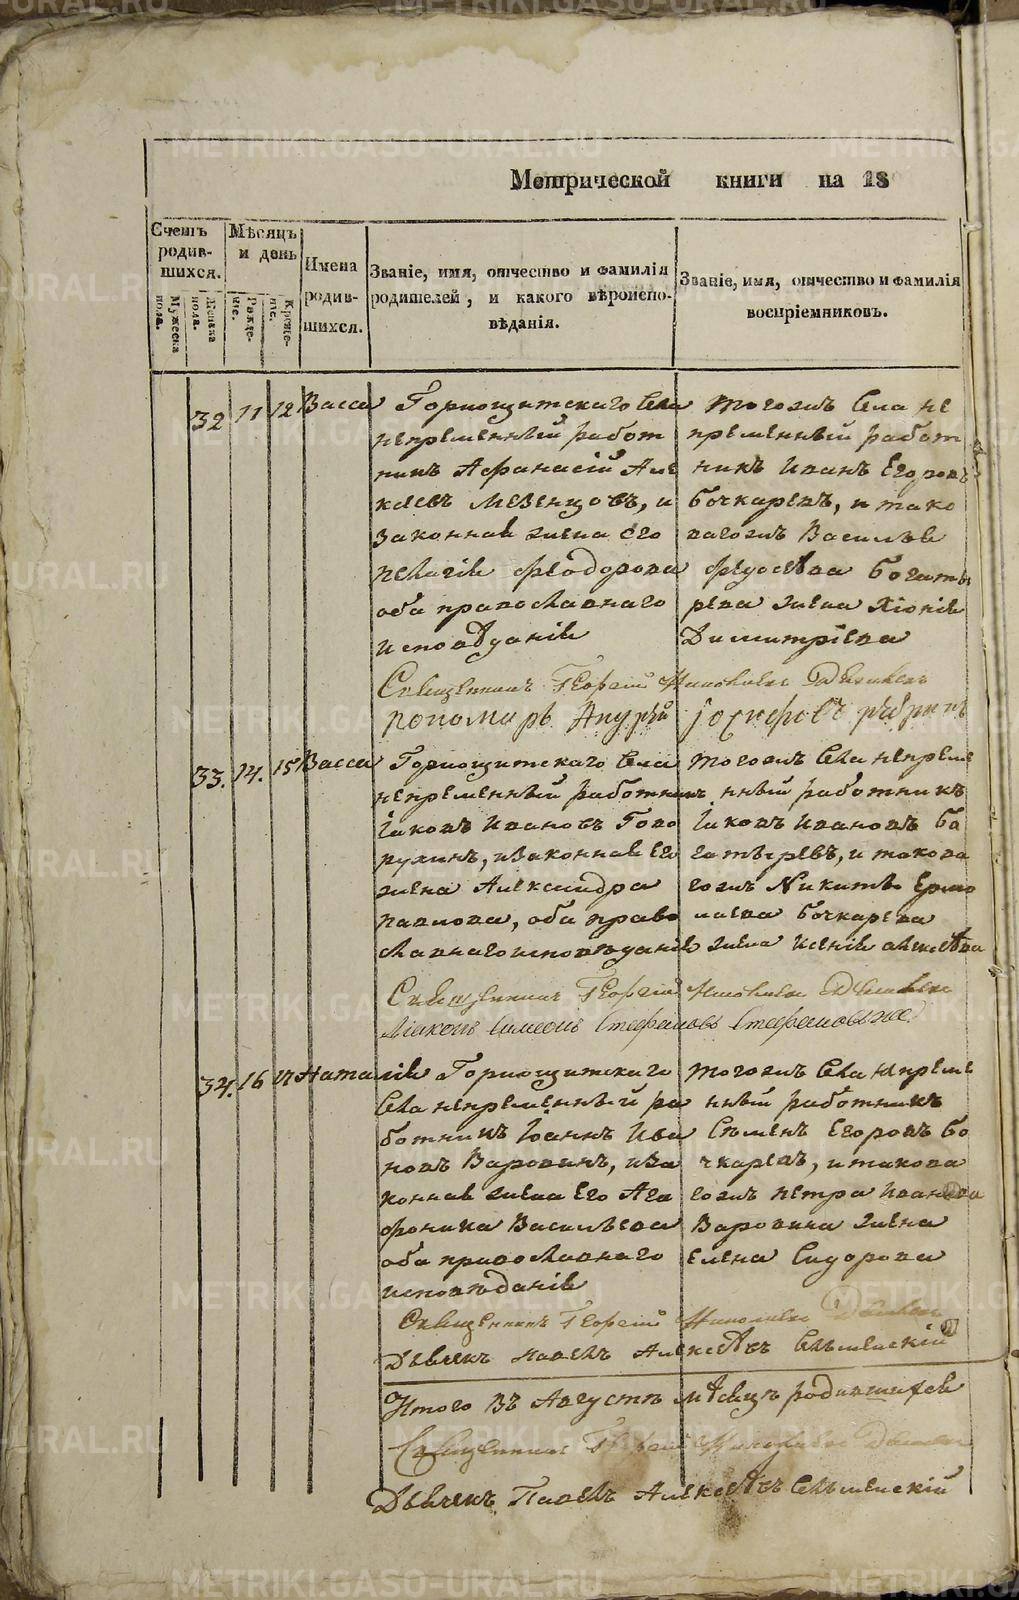 METRIKI.GASO-URAL.RU
Метрической книги на 18
Счетъ родив-шихся.
Мужеска пола.
Женска пола.
Мѣсяцъ и день
Рожде-ніе.
Креще-ніе.
Имена родив-шихся.
Званіе, имя, отчество и фамилія родителей, и какого вѣроиспо-вѣданія.
Званіе, имя, отчество и фамилія воспріемниковъ.
32 11 12 Васса
Горнощитскаго села
непременный работ
никъ Афанасій Але
ксѣевъ Мезенцовъ, и
законная жена его
Пелагія Феодорова
оба православнаго
исповѣданія
Тогожъ села не
пременный работ
никъ Иванъ Егоровъ
Бочкаревъ, и тако
вагожъ Василья
Федосѣева Богаты
рева жена Хіонія
Димитріева
Священникъ Георгій Николаевъ
Пономарь Андрей
33. 14. 15 Васса
Горнощитскаго села
непременный работникъ
Іаковъ Ивановъ Гово
рухинъ, и законная его
жена Александра
Павлова, оба право
славнаго исповѣданія
Тогожъ села непреме
нный работникъ
Іаковъ Ивановъ Бо
гатыревъ, и такова
гожъ Никиты Ермо
лаева Бочкарева
жена Ксенія Алексѣева
Священникъ Георгій Николаевъ
Діаконъ Симеонъ Стефановъ
34. 16 17 Наталія
Горнощитскаго
села непременный ра
ботникъ Іоаннъ Ива
новъ Варовинъ, и за
конная жена его Ага
фоника Васильева
оба православнаго
исповѣданія
Тогожъ села непреме
нный работникъ
Семенъ Егоровъ Бо
чкаревъ, и такова
гожъ Петра Иванова
Варовина жена
Елена Сидорова
Священникъ Георгій Николаевъ
Дьячекъ Павелъ Алексѣевъ
Итого въ Августѣ мѣсяцѣ родившихся
Священникъ Георгій Николаевъ
Дьячекъ Павелъ Алексѣевъ